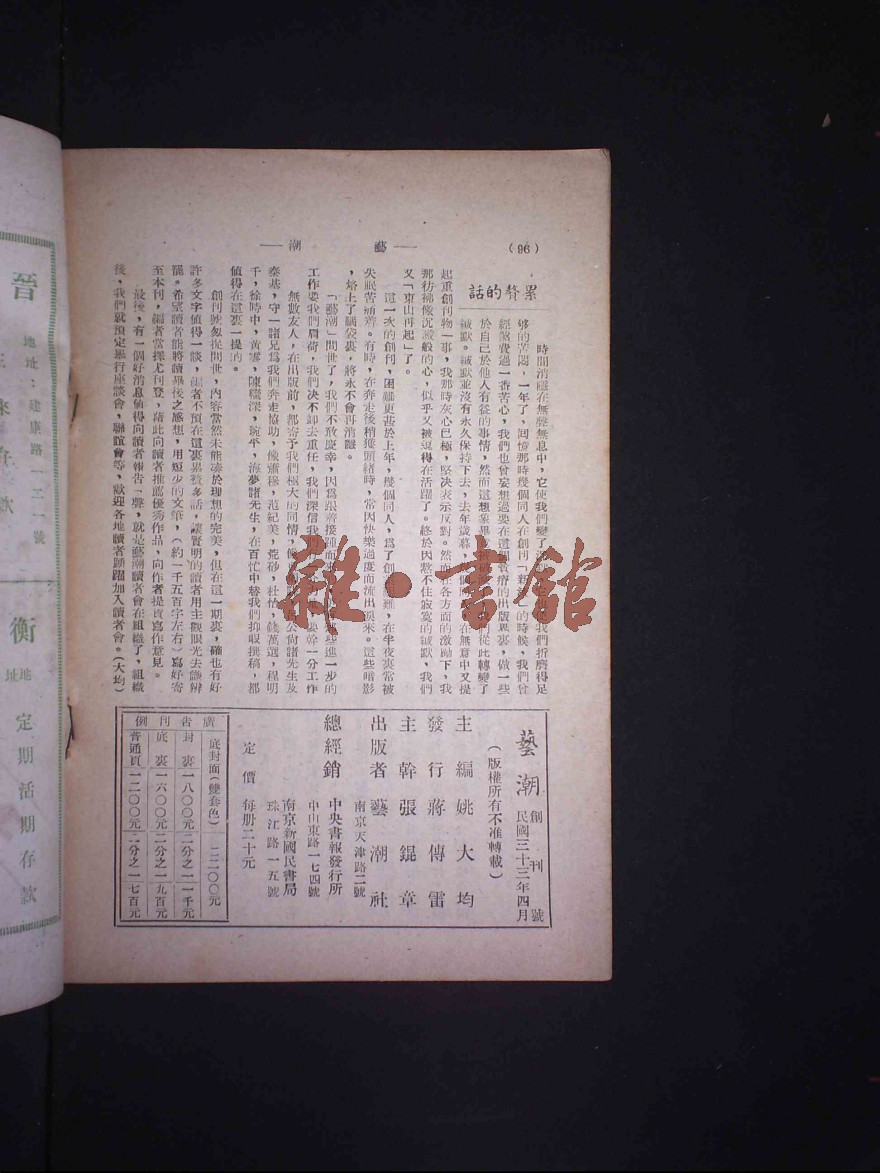 (96)
—藝潮—
累贅的話
時間消磨在無聲無息中，它使我們變了
够的苦悶，一年了，回憶那時幾個同人在創刊「新」的時候，我們曾
經盤費過一番苦心，我們也曾妄想過要在這的出版界裏，做一些
於自己於他人有益的事情，然而這想象界我們從此轉變了
緘默。緘默並沒有永久保持下去，去年歲暮，個同在無意中又提
起重創刊物一事，我那時灰心已極，堅决表示反對。然而在各方面的激勵下，我
那彷彿像沉澱般的心，似乎又被現得在活躍了。終於因熬不住寂寞的緘默，我們
又「東山再起」了。
這一次的創刊，困難更甚於上年，幾個同人，爲了創難，在半夜裏常被
失眠苦痛着。有時，在奔走後稍獲頭緒時，常因快樂過度而流出淚來。這些暗影
，烙上了腦袋裏，將永不會再消隱。
「藝潮」問世了，我們不敢慶幸，因爲跟着接踵而來些進一步的
工作要我們肩荷，我們決不卸去重任，我們深信我們要幹一分工作
無數友人，在出版前，都寄予我們極大的同情，公何諸先生及
秦基，守一諸兄爲我們奔走協助，像蕭穆，范紀美，荒砂，杜怡，錢萬選，程明
千，徐時中，黃雲，陳繼深，琬平，海夢諸先生，在百忙中替我們抑収撰稿，都
值得在這裏一提的。
創刊號匆促問世，內容當然未能湊於理想的完美，但在這一期裏，確也有好
許多文字值得一談，編者不預在這裏累贅多話，讓賢明的讀者用主觀眼光去鑄辨
罷。希望讀者能將讀畢後之感想，用短少的文筆，（約一千五百字左右）寫好寄
至本刊，編者當擇尤刊登，藉此向讀者推薦優秀作品，向作者提貢寫作意見。
最後，有一個好消息値得向讀者報告一聲，就是藝潮讀者會在組織了，組織
後，我們就預定舉行座談會，聯誼會等，歡迎各地讀者踴躍加入讀者會。（大均）
藝潮 創刊號
民國三十三年四月
（版權所有不准轉載）
主編 姚大均
發行 蔣傳雷
主幹 張錕章
出版者 藝潮社
南京天津路二號
總經銷 中央書報發行所
中山東路一七四號
南京新國民書局
珠江路一五號
定價 每册二十元
廣告刊例
底封面（雙套色） 二二〇〇元
封裏 一八〇〇元 二分之一一千元
底裏 一六〇〇元 二分之一九百元
普通頁 一二〇〇元 二分之一七百元
晉
地址：建康路一三一號
往來存款
衡
地址
定期活期存款
雜·書館